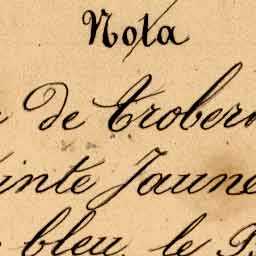 Nota
de Trobern
inte Jaune
bleu, le B